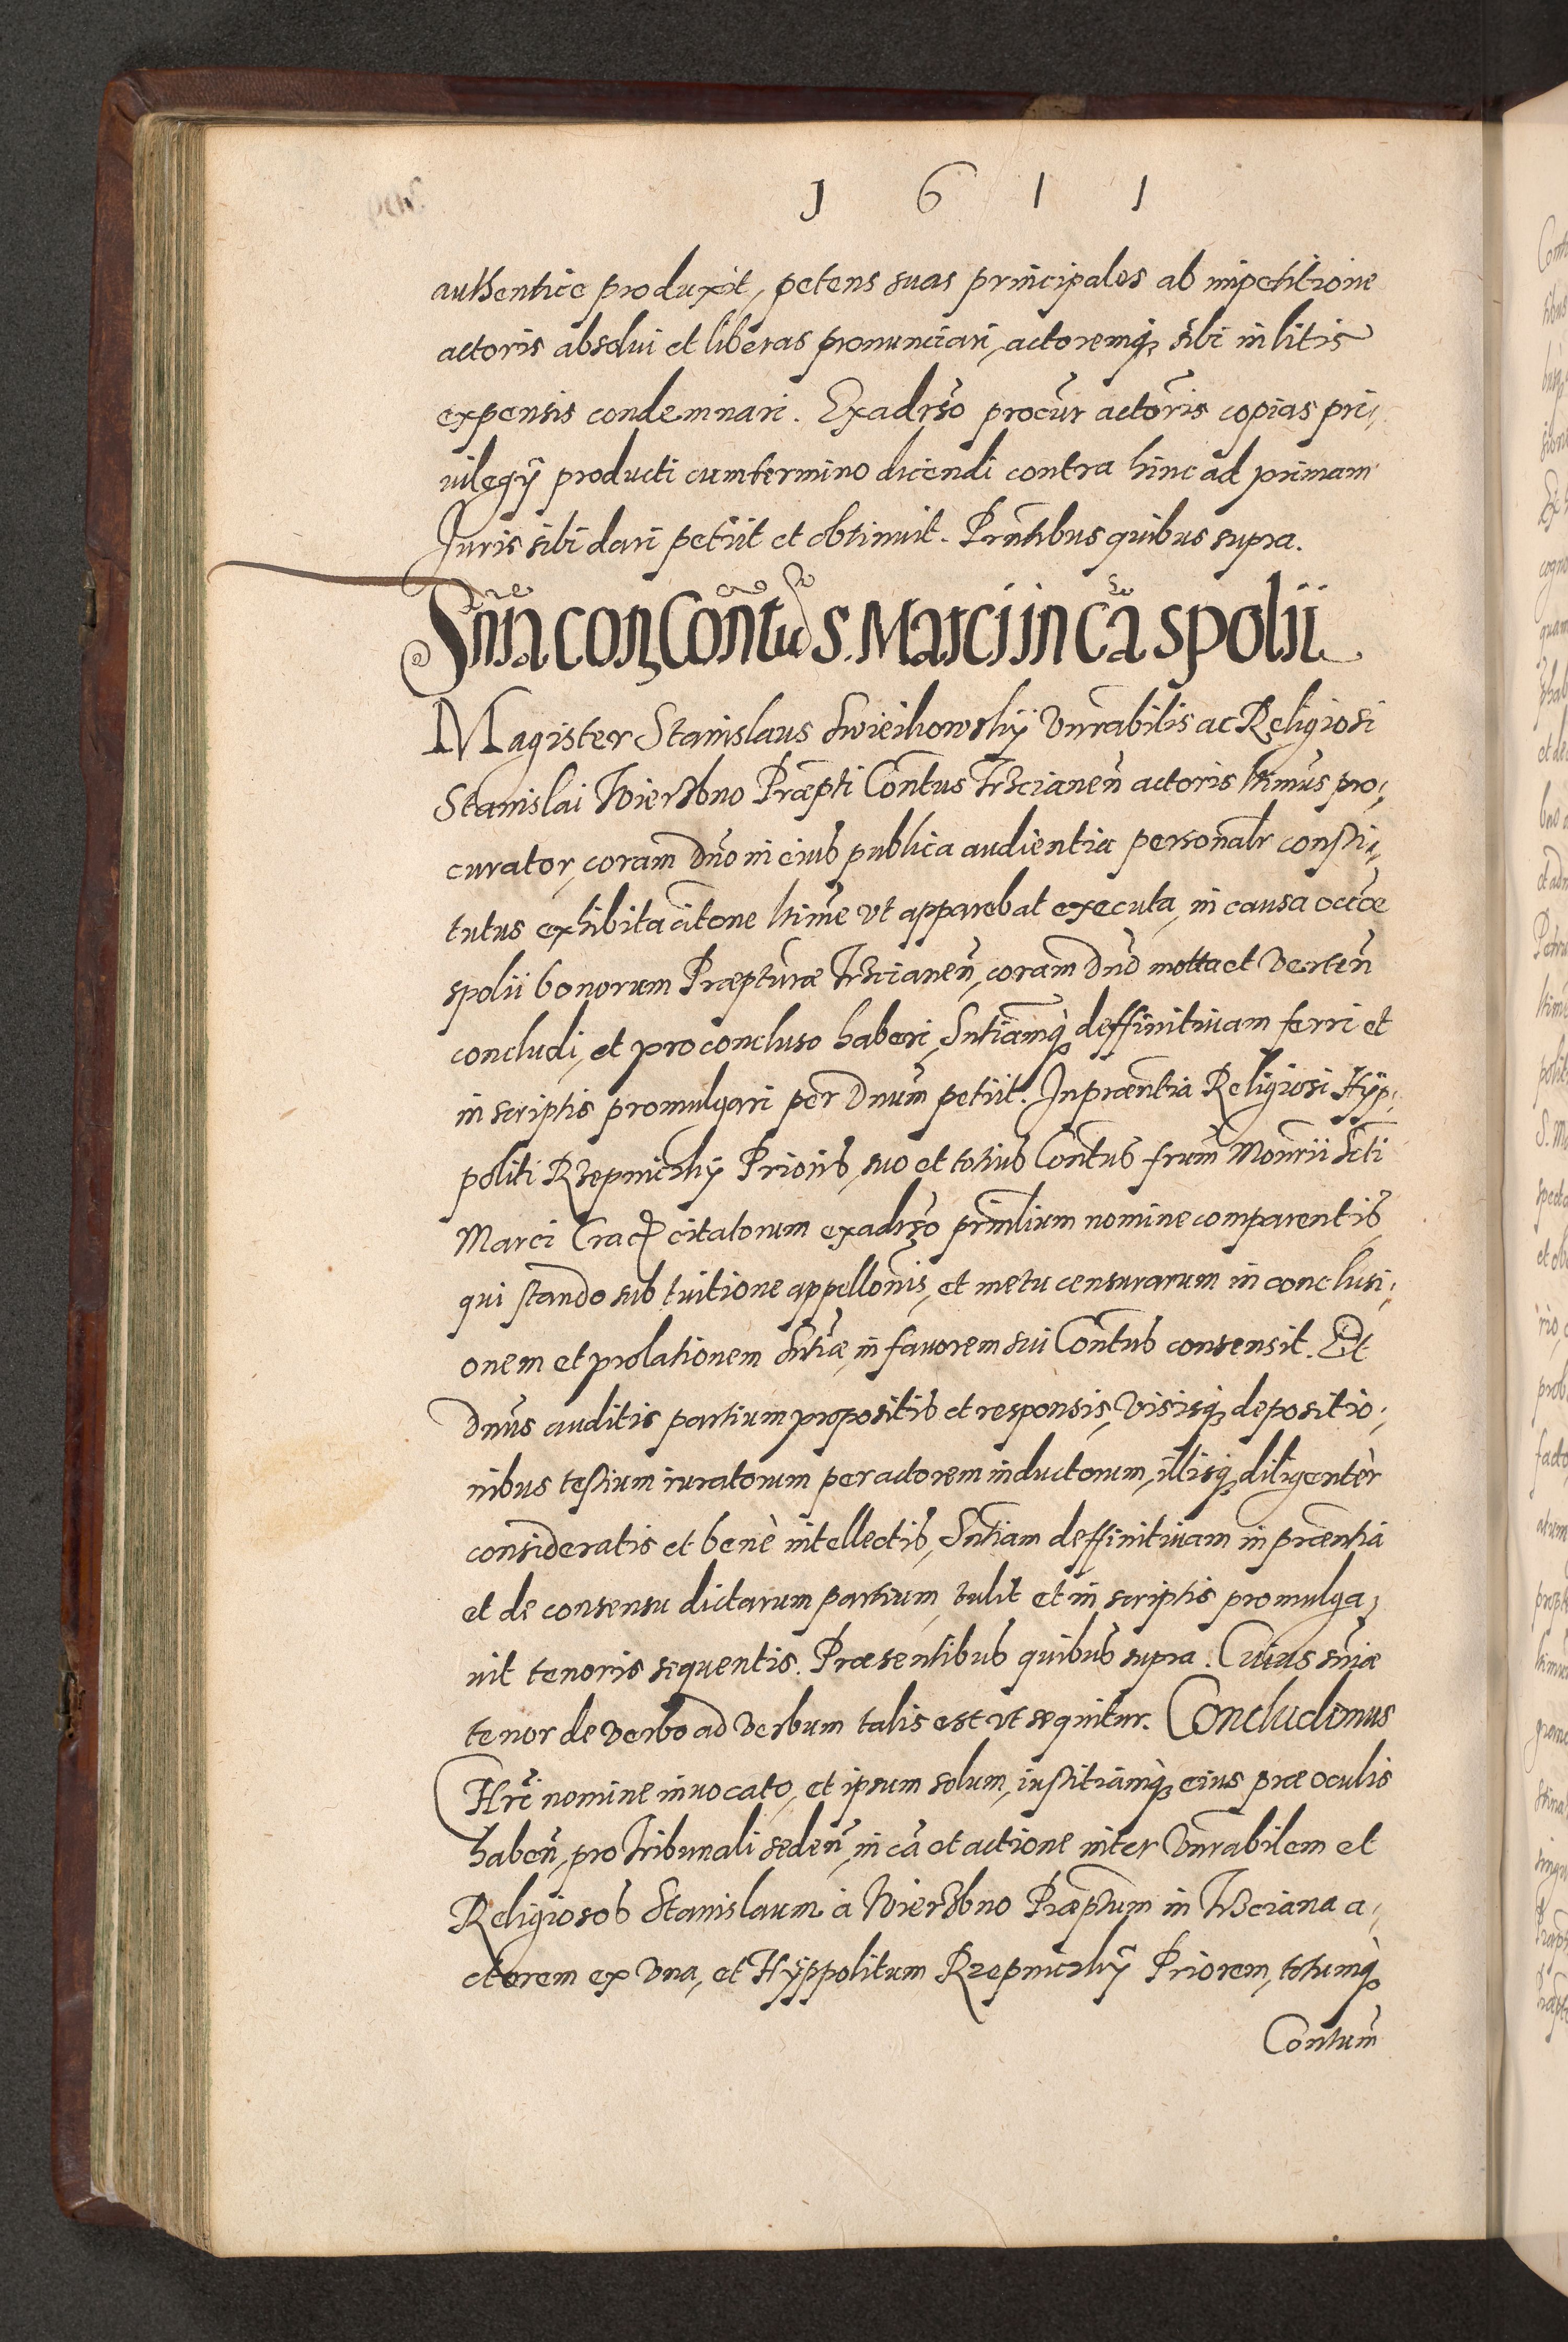 1 6 1 1
authentice produxit, petens suas principales ab impetitione
actoris absolui et liberas pronunciari, actoremq; sibi in litis
expensis condemnari. Exadrso procur actoris copias pri,
uilegÿ producti cum termino dicendi contra hinc ad primam
Juris sibi dari petiit et obtinuit. Prntibus quibus supra.
Snia con Contu S. Marci in ca spolii
Magister Stanislaus Swieihowskÿ Vnrabilis ac Religiosi
Stanislai Wierzbno Præpti Contus Trzcianen actoris ltimus pro,
curator, coram dno in eius publica audientia personalr consti,
tutus exhibita citone ltime vt apparebat executa, in causa occoe
spolii bonorum Præpturæ Trzcianen, coram Dno motta et Verten
concludi, et pro concluso haberi, Sntiamq; deffinitiuam ferri et
in scriptis promulgari per Dnum petiit. In præntia Religiosi Hÿp,
politi Rzepniczkÿ Prioris, suo et totius Contus frum Monrii Scti
Marci Crac citatorum exadrso prinlium nomine comparentis,
qui stando sub tuitione appellonis, et metu censurarum in conclusi,
onem et prolationem Sntiæ, in fauorem sui Contus consensit. Et
Dnus auditis partium propositis et responsis, Visisq; depositio,
nibus testium iuratorum per actorem inductorum, illisq; diligentèr
consideratis et benè intellectis, Sntiam deffinitiuam in præntia
et de consensu dictarum partium, tulit et in scriptis promulga,
uit tenoris sequentis. Præsentibus quibus supra. Cuius sniæ
tenor de verbo ad verbum talis est vt sequitur. Concludimus
Hrci nomine inuocato, et ipsum solum, iustitiamq; eius præ oculis
haben, pro tribunali seden, in ca et actione inter Vnrabilem et
Religiosos Stanislaum à Wierzbno Præptum in Trzciana a,
ctorem ex Vna, et Hÿppolitum Rzepniczkÿ Priorem, totumq;
Contum